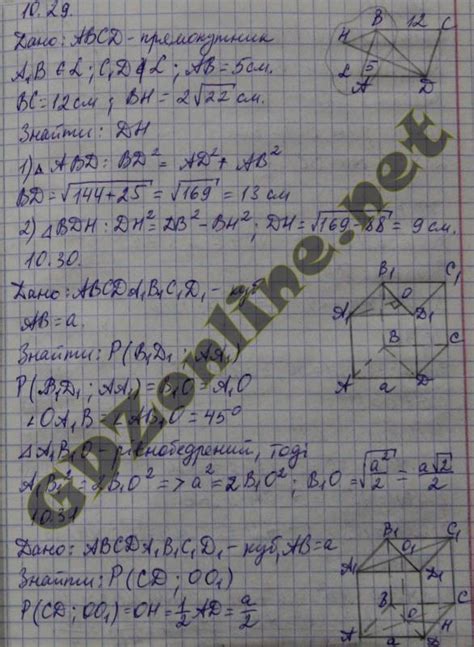 10.29.
Дано: ABCD - прямокутник
A,B ∈ L; C,D ∉ L; AB = 5см.
BC = 12 см; BH = 2√22 см.
Знайти: DH
1) △ ABD: BD² = AD² + AB²
BD = √144+25 = √169 = 13 см
2) △ BDH: DH² = DB² - BH²; DH = √169-88 = 9 см.
10.30.
Дано: ABCDA₁B₁C₁D₁ - куб
AB = a.
Знайти: P(B₁D₁; AA₁)
P(B₁D₁; AA₁) = B₁O = A₁O
∠OA₁B = ∠AB₁O = 45°
△ A₁B₁O - рівнобедрений, тоді
A₁B₁² = 2B₁O² => a² = 2B₁O²; B₁O = √a²/2 = a√2/2
10.31
Дано: ABCDA₁B₁C₁D₁ - куб, AB = a
Знайти: P(CD; OO₁)
P(CD; OO₁) = OH = 1/2 AD = a/2
B 12 C
H
L 5
A D
B₁ C₁
O
A₁ D₁
B C
A a D
B₁ C₁
O₁
A₁ D₁
B C
O H
A a D
GDZonline.net